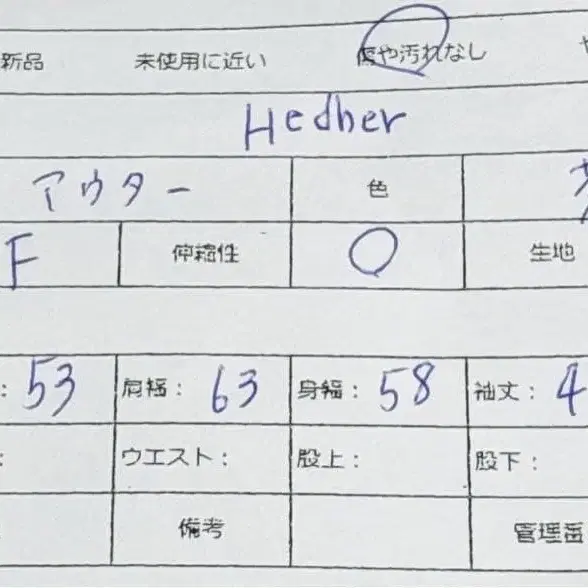 新品 未使用に近い 傷や汚れなし
Hedher
アウター 色
F 伸縮性 ○ 生地
: 53 肩幅: 63 身幅: 58 袖丈: 4
: ウエスト: 股上: 股下:
備考 管理番